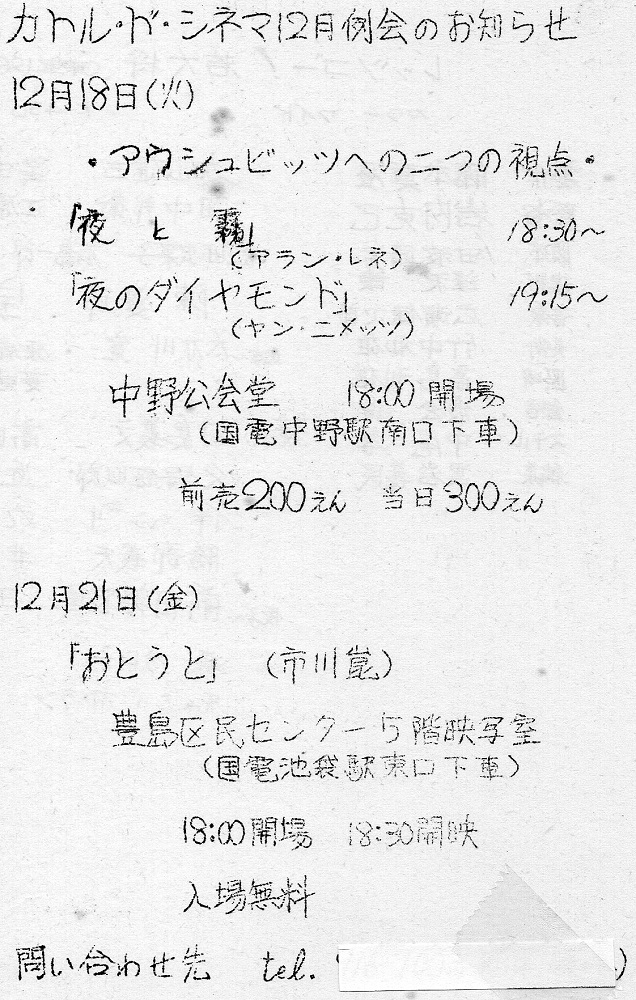 カトル・ド・シネマ12月例会のお知らせ
12月18日(火)
・アウシュビッツへの二つの視点・
「夜と霧」 18:30~
(アラン・レネ)
「夜のダイヤモンド」 19:15~
(ヤン・ニメッツ)
中野公会堂 18:00開場
(国電中野駅南口下車)
前売200えん 当日300えん
12月21日(金)
「おとうと」 (市川崑)
豊島区民センター5階映写室
(国電池袋駅東口下車)
18:00開場 18:30開映
入場無料
問い合わせ先 tel.